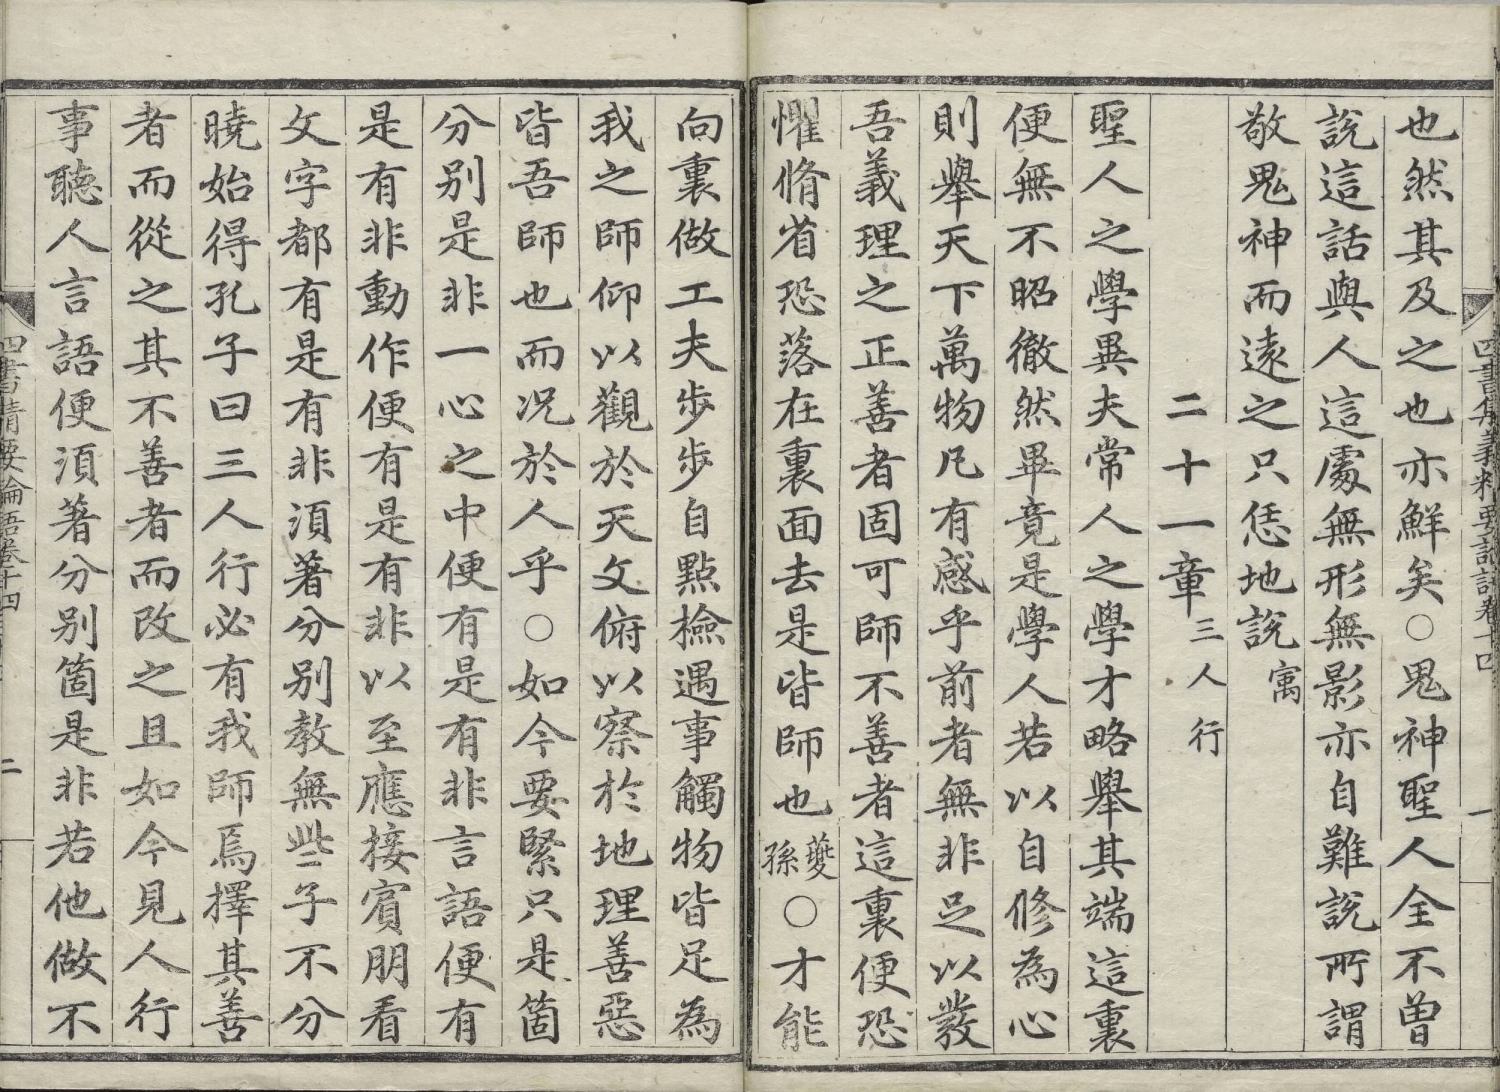 也然其及之也亦鮮矣○鬼神聖人全不曾
說這話與人這處無形無影亦自難說所謂
敬鬼神而遠之只恁地說寓
二十一章三人行
聖人之學異夫常人之學才略舉其端這裏
便無不昭徹然畢竟是學人若以自修為心
則舉天下萬物凡有感乎前者無非足以發
吾義理之正善者固可師不善者這裏便恐
懼脩省恐落在裏面去是皆師也夔孫○才能
向裏做工夫步步自點檢遇事觸物皆足為
我之師仰以觀於天文俯以察於地理善惡
皆吾師也而況於人乎○如今要緊只是箇
分別是非一心之中便有是有非言語便有
是有非動作便有是有非以至應接賓朋看
文字都有是有非須著分別教無些子不分
曉始得孔子曰三人行必有我師焉擇其善
者而從之其不善者而改之且如今見人行
事聽人言語便須著分別箇是非若他做不
四書精要論語卷十四
二